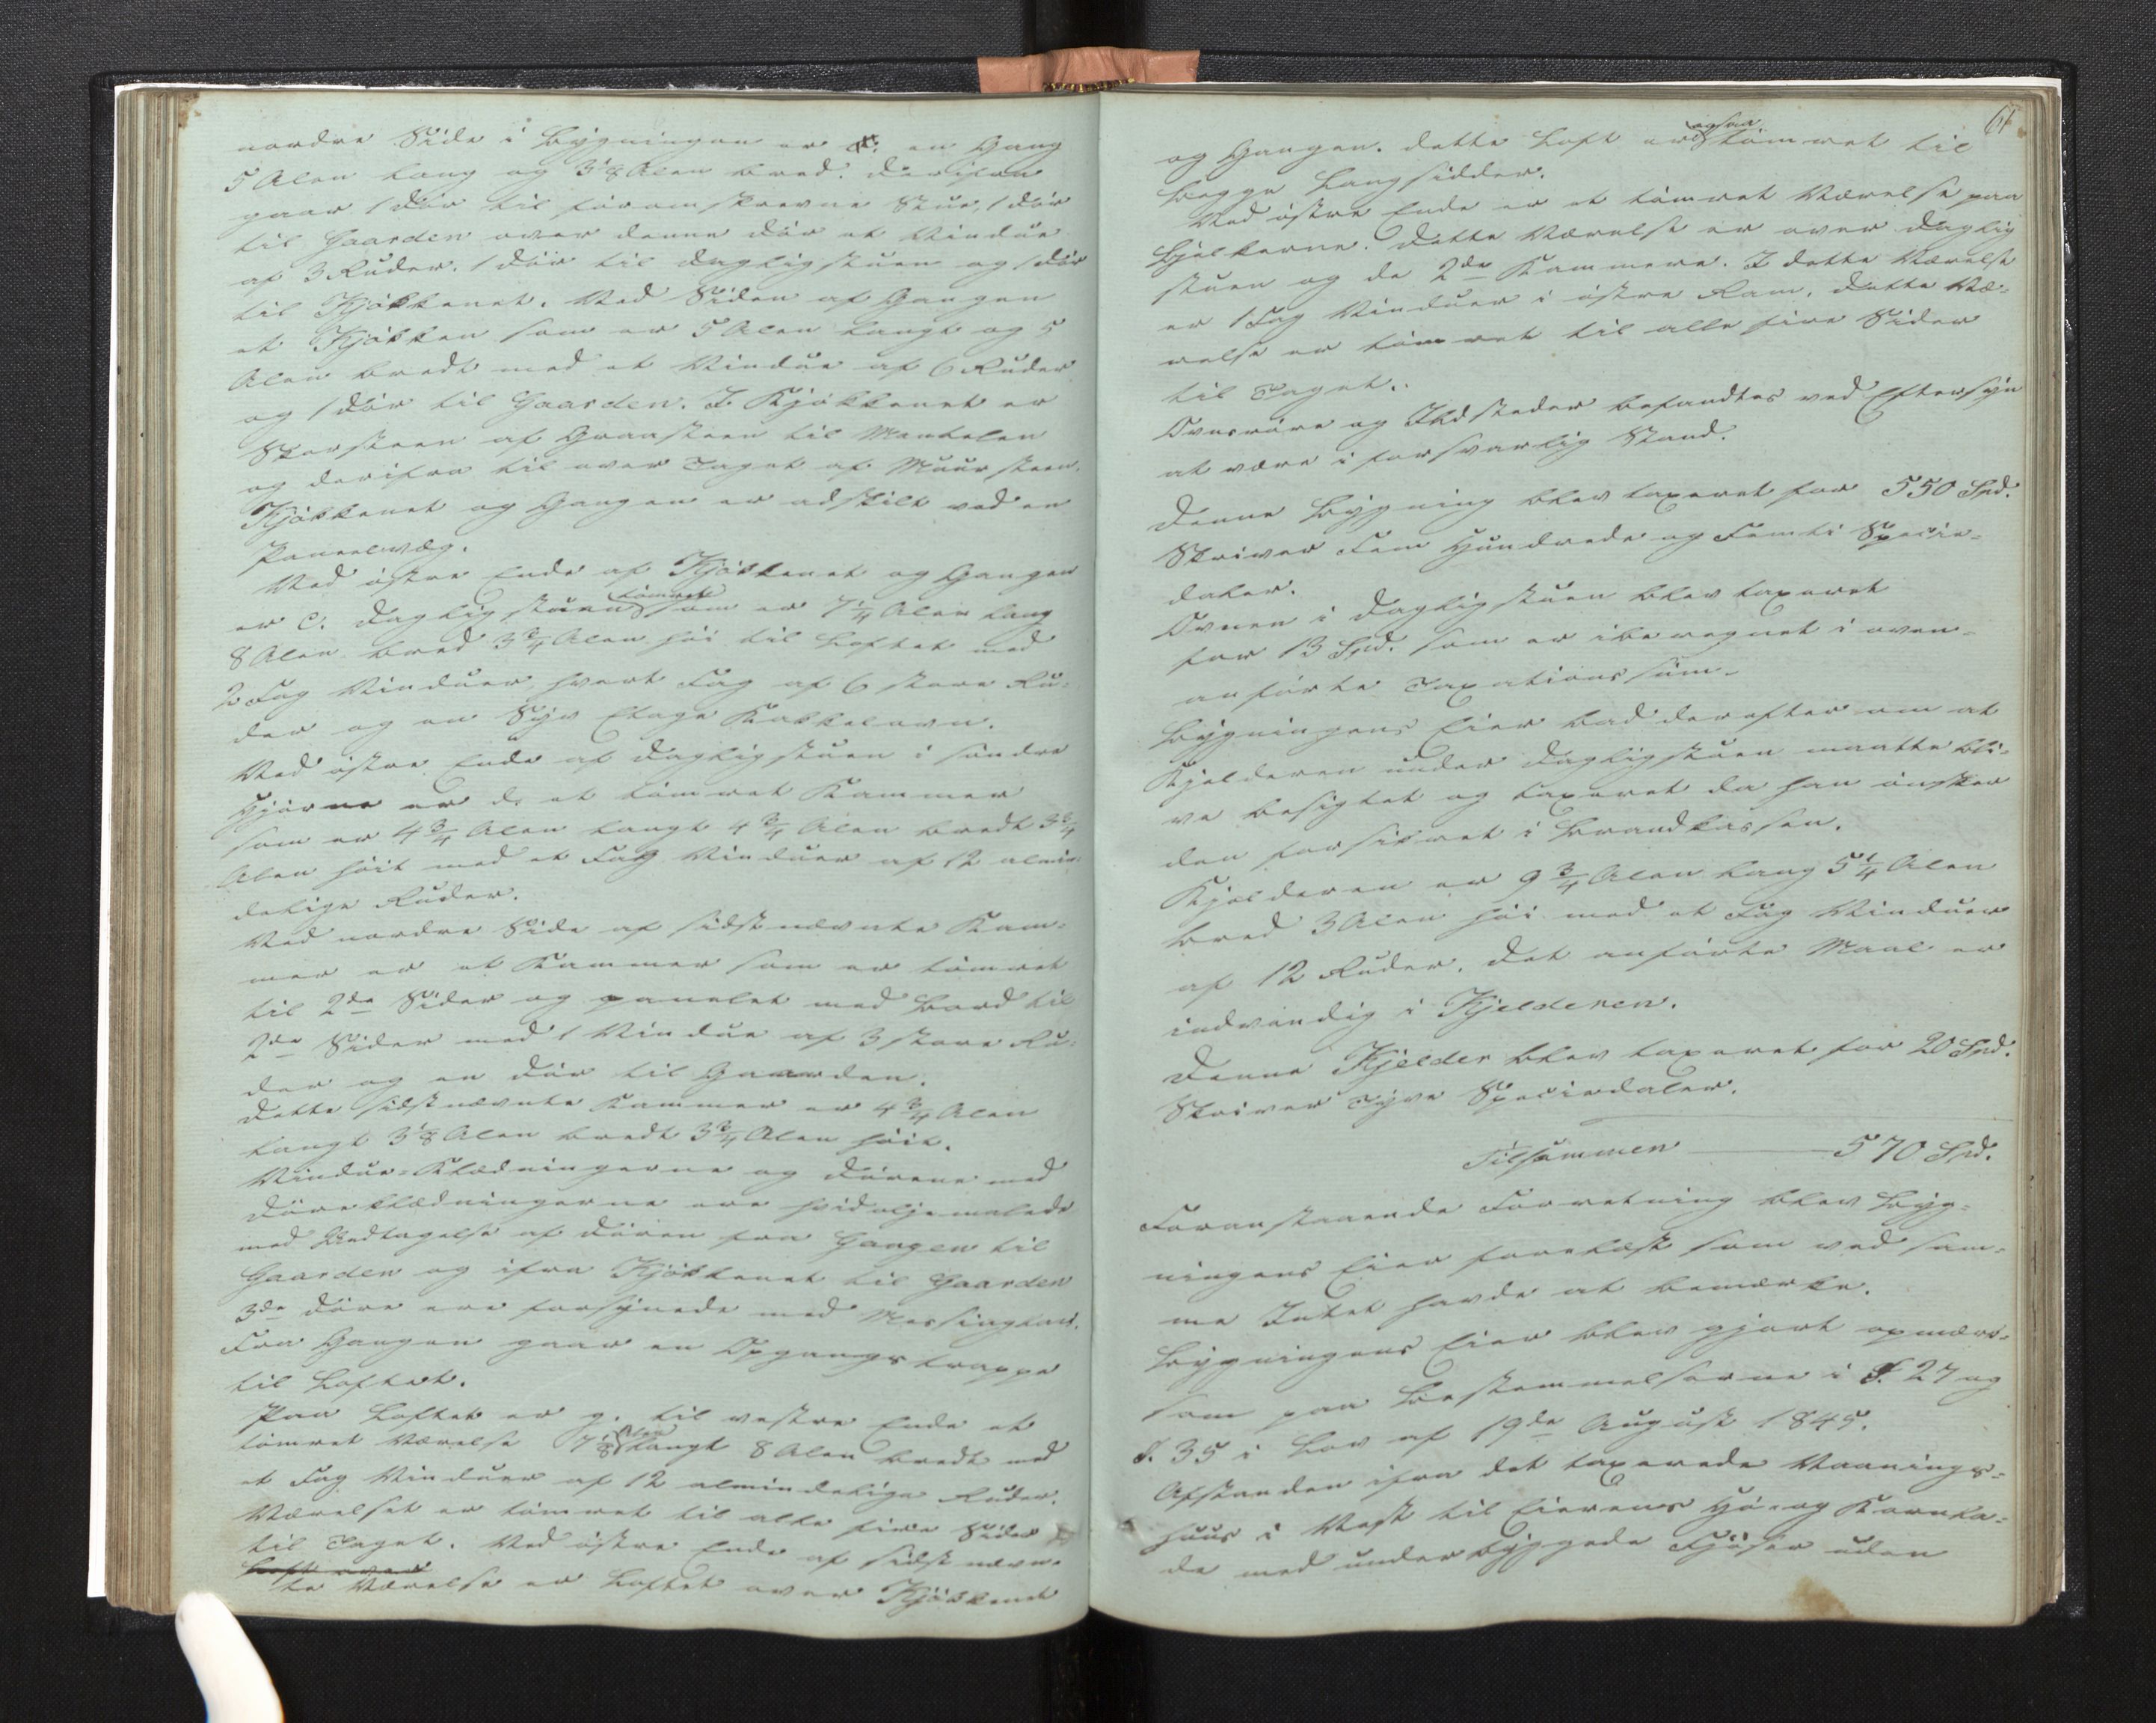 nordre Side i Bygningen er en Gang
5 Alen lang og 3 1/8 Alen bred. derifra
gaar 1 Dör til föromskrevne Stue, 1 dör
til Gaarden over denne dör et Vindue
af 3 Ruder. 1 dör til dagligstuen og 1 dör
til Kjökkenet. Ved Siden af Gangen
et Kjökken som er 5 Alen langt og 5
Alen bredt med et Vindue af 6 Ruder
og 1 dör til Gaarden. I Kjökkenet er
Skorsteen af Graasteen til Mantelen
og derifra til over Taget af Muursteen.
Kjökkenet og Gangen er adskilt ved en
Paneelvæg.
Ved östre Ende af Kjökkenet og Gangen
er c. dagligstuen tömret som er 7 1/4 Alen lang
8 Alen bred 3 3/4 Alen höi til Loftet med
2 Fag Vinduer hvert Fag af 6 store Ru-
der og en Syv Etage Kakkelovn.
Ved östre Ende af dagligstuen i söndre
Hjörne er d. et tömret Kammer
som er 4 3/4 Alen langt 4 3/4 Alen bredt 3 3/4
Alen höit med et Fag Vinduer af 12 almin-
delige Ruder.
Ved nordre Side af sidstnævnte Kam-
mer er et Kammer som er tömret
til 2de Sider og panelet med Bord til
2de Sider med 1 Vindue af 3 store Ru-
der og en dör til Gaarden.
dette sidstnævnte Kammer er 4 3/4 Alen
langt 3 1/8 Alen bredt 3 3/4 Alen höit.
Vindue-Klædningerne og dörene med
döreklædningerne ere hvidoljemalede
med Undtagelse af dören fra Gangen til
Gaarden og ifra Kjökkenet til Gaarden
3de döre ere forsynede med Messinglaas.
Fra Gangen gaar en Opgangstrappe
til Loftet.
Paa Loftet er g. til vestre Ende et
tömret Værelse 7 1/8 Alen langt 8 Alen bredt med
et Fag Vinduer af 12 almindelige Ruder.
Værelset er tömret til alle fire Sider
til Taget. Ved östre Ende af sidstnævn-
te Værelse er Loftet over Kjökkenet
61
og Gangen. dette Loft er ogsaa tömret til
begge Langsidder.
Ved östre Ende er et tömret Værelse paa
Bjelkerne. dette Værelse er over daglig
stuen og de 2de Kammere. I dette Værelse
er 1 Fag Vinduer i östre Ram. dette Væ-
relse er tömret til alle fire Sider
til Taget.
Ovnsröre og Ildsteder befandtes ved Eftersyn
at være i forsvarlig Stand.
denne Bygning blev taxeret for 550 Spd.
Skriver Fem Hundrede og Femti Specie-
daler.
Ovnen i dagligstuen blev taxeret
for 13 Spd. som er iberegnet i oven-
anförte Taxationssum.
Bygningens Eier bad derefter om at
Kjelderen under dagligstuen maatte bli-
ve besigtet og taxeret da han önsker
den forsikret i Brandkassen.
Kjelderen er 9 3/4 Alen lang 5 1/4 Alen
bred 3 Alen höi med et Fag Vinduer
af 12 Ruder. det anförte Maal er
indvendig i Kjelderen.
denne Kjelder blev taxeret for 20 Spd.
Skriver Tyve Speciedaler.
Tilsammen 570 Spd.
Foranstaaende Forretning blev Byg-
ningens Eier forelæst som ved sam-
me Intet havde at bemærke.
Bygningens Eier blev gjort opmærk-
som paa Bestemmelserne i §. 27 og
§. 35 i Lov af 19de August 1845.
Afstanden ifra det taxerede Vaanings-
huus i Vest til Eierens Hö- og Kornla-
de med underbyggede Fjöser uden